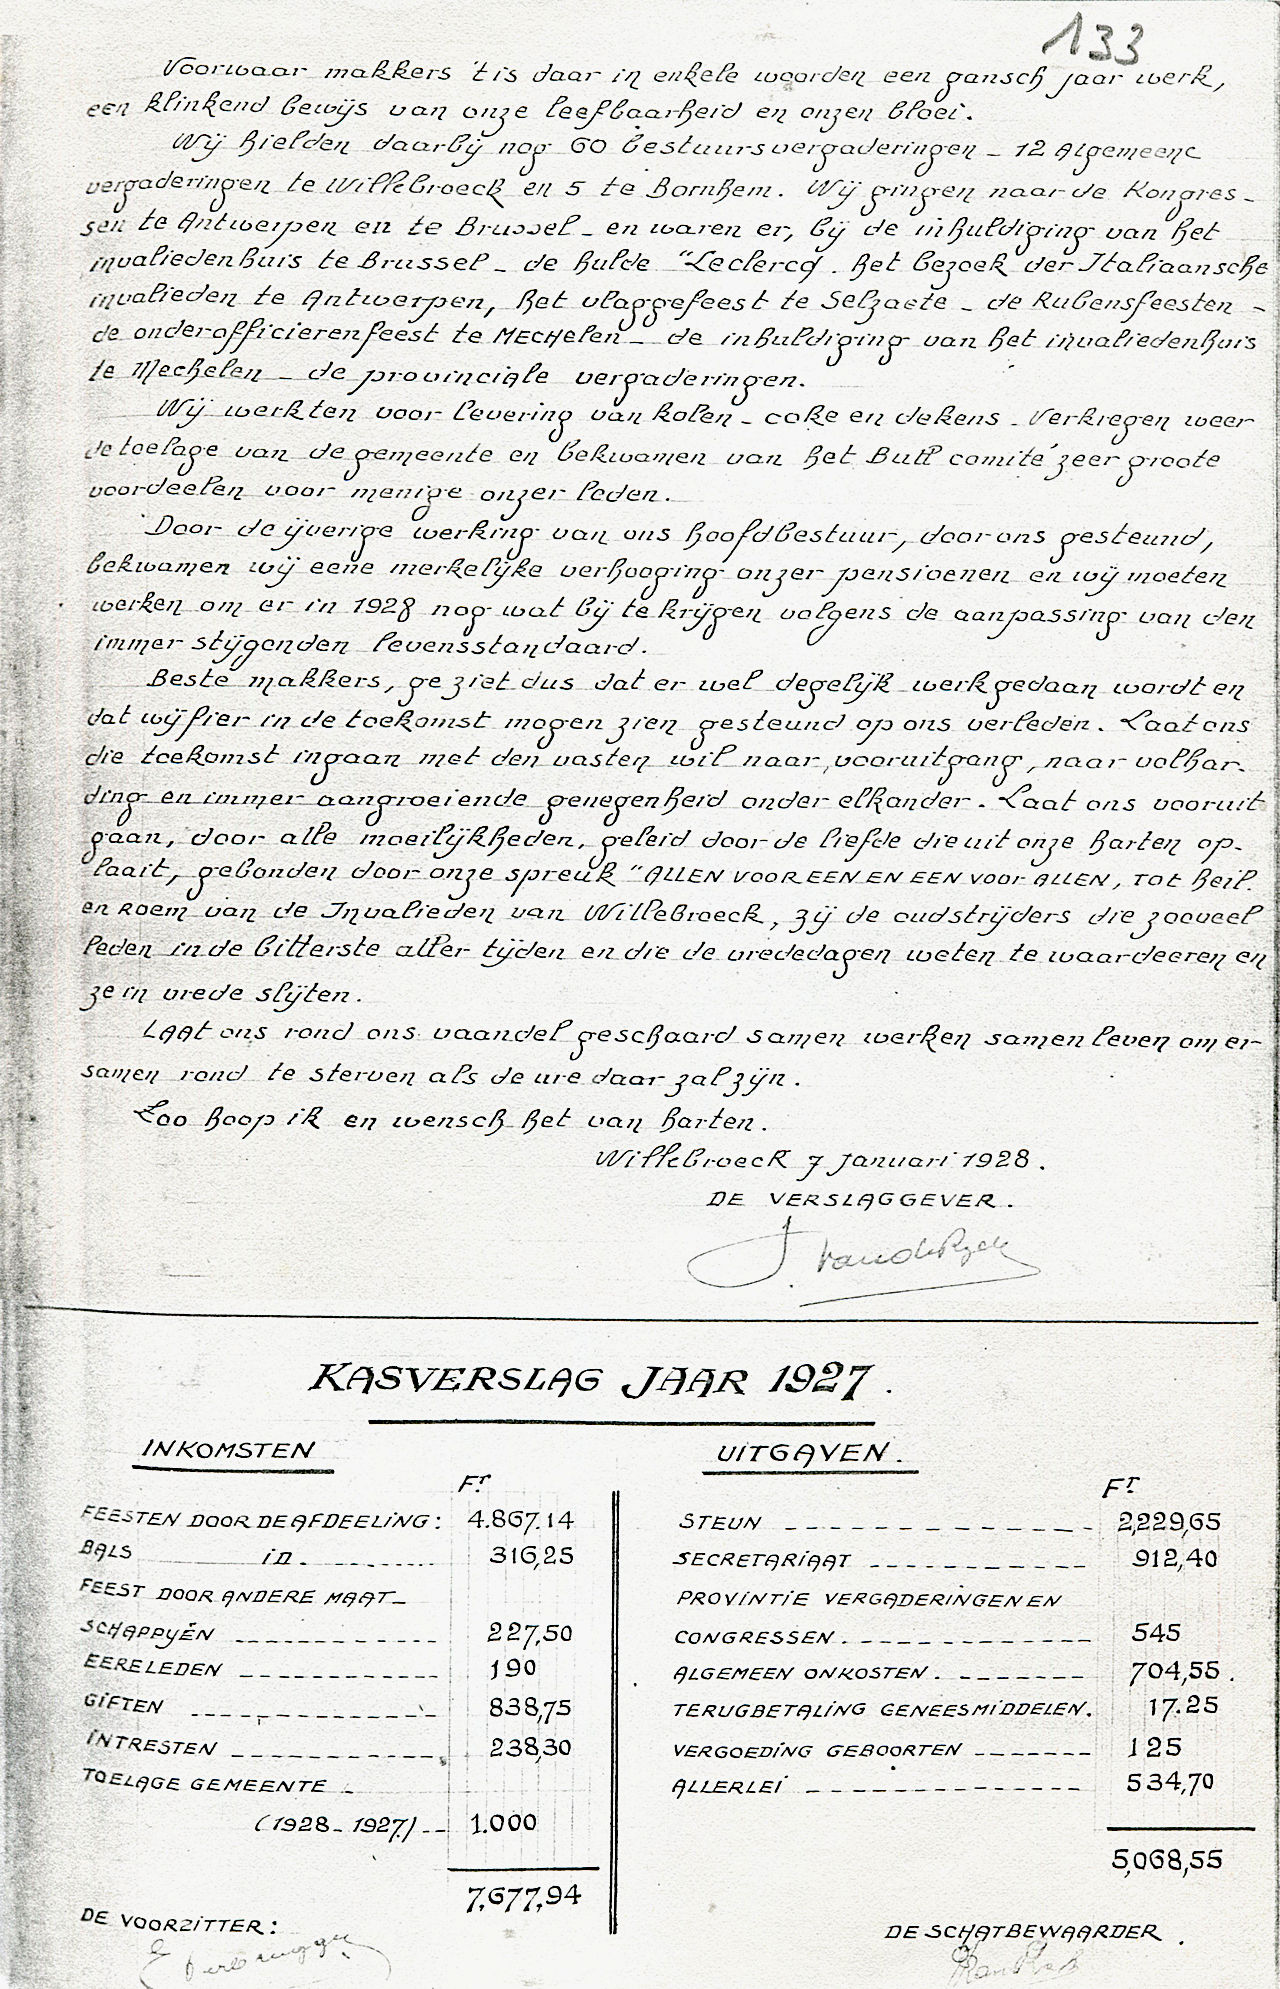 133
Voorwaar makkers 't is daar in enkele woorden een gansch jaar werk,
een klinkend bewijs van onze leefbaarheid en onzen bloei.
Wij hielden daarbij nog 60 bestuursvergaderingen – 12 Algemeene
vergaderingen te Willebroeck en 5 te Bornhem. Wij gingen naar de Kongres –
sen te Antwerpen en te Brussel – en waren er, bij de inhuldiging van het
invaliedenhuis te Brussel – de hulde "Leclercq. het bezoek der Italiaansche
invalieden te Antwerpen, het vlaggefeest te Selzaete – de Rubensfeesten –
de onderofficierenfeest te Mechelen – de inhuldiging van het invaliedenhuis
te Mechelen – de provinciale vergaderingen.
Wij werkten voor levering van kolen – coke en dekens – Verkregen weer
de toelage van de gemeente en bekwamen van het Bull comité zeer groote
voordeelen voor menige onzer leden.
Door de ijverige werking van ons hoofdbestuur, door ons gesteund,
bekwamen wij eene merkelijke verhooging onzer pensioenen en wij moeten
werken om er in 1928 nog wat bij te krijgen volgens de aanpassing van den
immer stijgenden levensstandaard.
Beste makkers, ge ziet dus dat er wel degelijk werk gedaan wordt en
dat wij fier in de toekomst mogen zien gesteund op ons verleden. Laat ons
die toekomst ingaan met den vasten wil naar vooruitgang, naar volhar-
ding en immer aangroeiende genegenheid onder elkander. Laat ons vooruit
gaan, door alle moeilijkheden, geleid door de liefde die uit onze harten op-
laait, gebonden door onze spreuk "ALLEN VOOR EEN EN EEN VOOR ALLEN, TOT heil
en ROEM van de Invalieden van Willebroeck, zij de oudstrijders die zooveel
leden in de bitterste aller tijden en die de vrededagen weten te waardeeren en
ze in vrede slijten.
LAAT ons rond ons vaandel geschaard samen werken samen leven om er
samen rond te sterven als de ure daar zal zijn.
Zoo hoop ik en wensch het van harten.
Willebroeck 7 Januari 1928.
DE VERSLAGGEVER.
KASVERSLAG JAAR 1927.
INKOMSTEN
Fr
FEESTEN DOOR DE AFDEELING: 4.867.14
BALS in. 316,25
FEEST DOOR ANDERE MAAT–
SCHAPPYËN 227,50
EERELEDEN 190
GIFTEN 838,75
INTRESTEN 238,30
TOELAGE GEMEENTE –
(1928 – 1927.) 1.000
7.677,94
DE VOORZITTER:
UITGAVEN.
Fr
STEUN 2,229,65
SECRETARIAAT 912,40
PROVINTIE VERGADERINGEN EN
CONGRESSEN. 545
ALGEMEEN ONKOSTEN. 704,55.
TERUGBETALING GENEESMIDDELEN. 17.25
VERGOEDING GEBOORTEN 125
ALLERLEI 534,70
5,068,55
DE SCHATBEWAARDER.